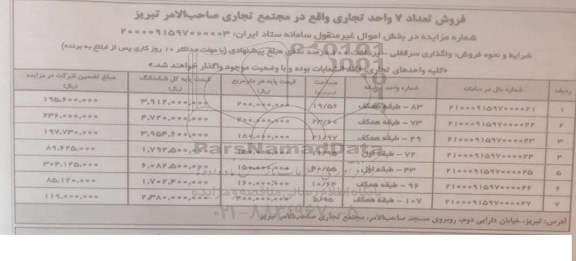 فروش تعداد ۷ واحد تجاری واقع در مجتمع تجاری صاحب‌الامر تبریز
شماره مزایده در بخش اموال غیرمنقول سامانه ستاد ایران: ۲۰۰۰۰۹۱۵۹۷۰۰۰۰۰۳
شرایط و نحوه فروش: واگذاری سرقفلی - پرداخت ۱۰۰ درصد نقدی مبلغ پیشنهادی (با مهلت حداکثر ۱۰ روز کاری پس از ابلاغ به برنده)
«کلیه واحدهای تجاری فاقد انشعابات بوده و با وضعیت موجود واگذار خواهند شد.»
ردیف شماره مال در سامانه شماره واحد مساحت قیمت پایه هر مترمربع (ریال) قیمت پایه کل ششدانگ (ریال) مبلغ تضمین شرکت در مزایده (ریال)
۱ ۲۱۰۰۰۹۱۵۹۷۰۰۰۰۲۱ ۸۳ - طبقه همکف ۱۹/۵۶ ۲۰۰,۰۰۰,۰۰۰ ۳,۹۱۲,۰۰۰,۰۰۰ ۱۹۵,۶۰۰,۰۰۰
۲ ۲۱۰۰۰۹۱۵۹۷۰۰۰۰۲۲ ۷۳ - طبقه همکف ۲۰۰,۰۰۰,۰۰۰ ۴,۷۲۰,۰۰۰,۰۰۰ ۲۳۶,۰۰۰,۰۰۰
۳ ۲۱۰۰۰۹۱۵۹۷۰۰۰۰۲۳ ۲۹ - طبقه همکف ۲۱/۹۷ ۱۸۰,۰۰۰,۰۰۰ ۳,۹۵۴,۶۰۰,۰۰۰ ۱۹۷,۷۳۰,۰۰۰
۴ ۲۱۰۰۰۹۱۵۹۷۰۰۰۰۲۴ ۷۲ - طبقه اول ۱,۷۹۲,۵۰۰,۰۰۰ ۸۹,۶۲۵,۰۰۰
۵ ۲۱۰۰۰۹۱۵۹۷۰۰۰۰۲۵ ۴۳ - طبقه اول ۴۰/۵۵ ۱۵۰,۰۰۰,۰۰۰ ۶,۰۸۲,۵۰۰,۰۰۰ ۳۰۴,۱۲۵,۰۰۰
۶ ۲۱۰۰۰۹۱۵۹۷۰۰۰۰۲۶ ۹۶ - طبقه همکف ۱۰/۶۴ ۱۶۰,۰۰۰,۰۰۰ ۱,۷۰۲,۴۰۰,۰۰۰ ۸۵,۱۲۰,۰۰۰
۷ ۲۱۰۰۰۹۱۵۹۷۰۰۰۰۲۷ ۱۰۷ - طبقه همکف ۵/۹۵ ۴۰۰,۰۰۰,۰۰۰ ۲,۳۸۰,۰۰۰,۰۰۰ ۱۱۹,۰۰۰,۰۰۰
آدرس: تبریز، خیابان دارایی دوم، روبروی مسجد صاحب‌الامر، مجتمع تجاری صاحب‌الامر تبریز
ParsNamadData
۰۲۱-۸۸۳۴۹۶۷۰-۵